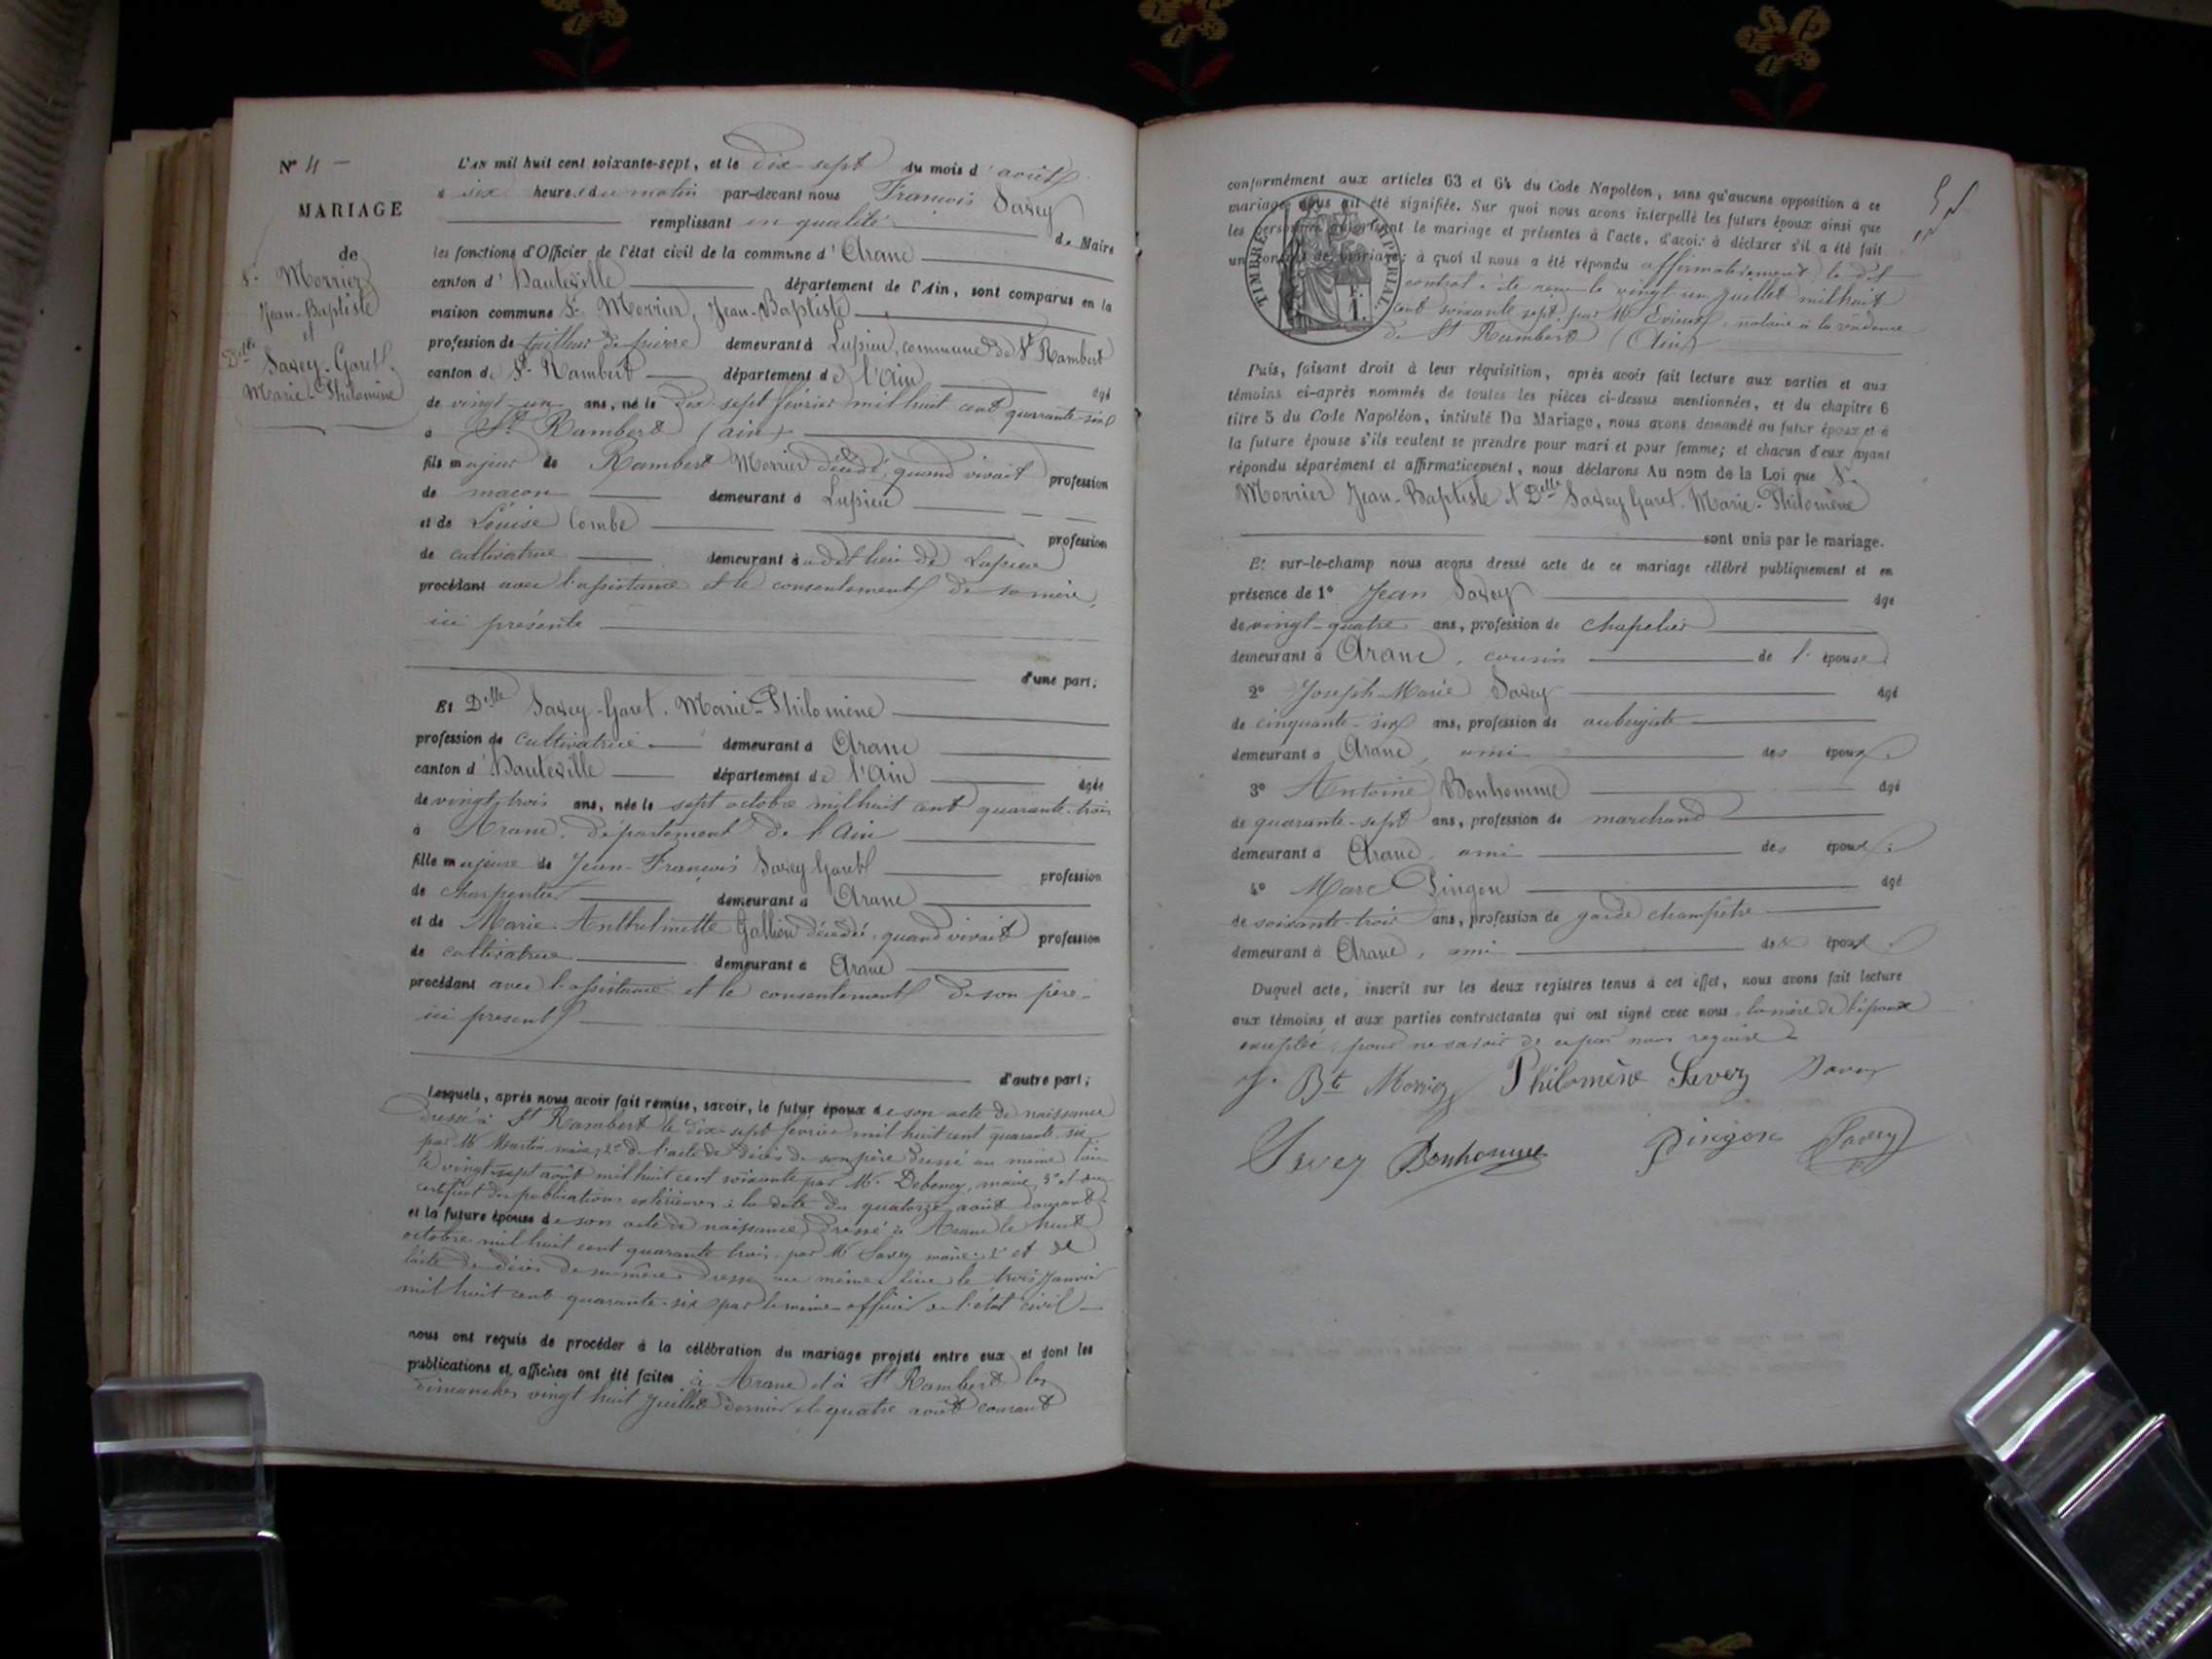 N° 4 —
MARIAGE
de
Sr Morrier
Jean-Baptiste
et
Delle Savey-Garet
Marie-Philomène
L'AN mil huit cent soixante-sept, et le dix-sept du mois d'août
à six heures du matin par-devant nous François Savey
remplissant en qualité de Maire
les fonctions d'Officier de l'état civil de la commune d'Aranc
canton d'Hauteville département de l'Ain, sont comparus en la
maison commune Sr Morrier, Jean-Baptiste
profession de tailleur de pierre demeurant à Lupieu, commune de St Rambert
canton de St Rambert département de l'Ain âgé
de vingt-un ans, né le dix sept février mil huit cent quarante-six
à St Rambert (ain)
fils majeur de Rambert Morrier décédé, quand vivait profession
de maçon demeurant à Lupieu
et de Louise Combe profession
de cultivatrice demeurant à udit lieu de Lupieu
procédant avec l'assistance et le consentement de sa mère,
ici présente
d'une part;
Et Delle Savey-Garet. Marie-Philomène
profession de cultivatrice demeurant à Aranc
canton d'Hauteville département de l'Ain âgée
de vingt-trois ans, née le sept octobre mil huit cent quarante-trois
à Aranc. département de l'Ain
fille majeure de Jean-François Savey Garet profession
de charpentier demeurant à Aranc
et de Marie-Anthelmette Gallien décédée, quand vivait profession
de cultivatrice demeurant à Aranc
procédant avec l'assistance et le consentement de son père
ici présent
d'autre part;
Lesquels, après nous avoir fait remise, savoir, le futur époux de son acte de naissance
dressé à St Rambert le dix-sept février mil huit cent quarante-six
par Mr Martin maire; 2° de l'acte de décès de son père dressé au même lieu
le vingt-sept août mil huit cent soixante par Mr Debeney, maire, 3° et du
certificat des publications extérieures à la date du quatorze août courant
et la future épouse de son acte de naissance dressé à Aranc le huit
octobre mil huit cent quarante trois, par Mr Savey maire; 2° et de
l'acte de décès de sa mère dressé au même lieu le trois Janvier
mil huit cent quarante-six par le même officier de l'état civil —
nous ont requis de procéder à la célébration du mariage projeté entre eux et dont les
publications et affiches ont été faites à Aranc et à St Rambert les
dimanches vingt huit Juillet dernier et quatre août courant
conformément aux articles 63 et 64 du Code Napoléon, sans qu'aucune opposition à ce
mariage nous ait été signifiée. Sur quoi nous avons interpellé les futurs époux ainsi que
les personnes autorisant le mariage et présentes à l'acte, d'avoir à déclarer s'il a été fait
un contrat de mariage; à quoi il nous a été répondu affirmativement, le dit
contrat a été reçu le vingt-un Juillet mil huit
cent soixante sept, par Mr notaire à la résidence
de St Rambert (Ain)
TIMBRE IMPÉRIAL
1 F.
Puis, faisant droit à leur réquisition, après avoir fait lecture aux parties et aux
témoins ci-après nommés de toutes les pièces ci-dessus mentionnées, et du chapitre 6
titre 5 du Code Napoléon, intitulé Du Mariage, nous avons demandé au futur époux et à
la future épouse s'ils veulent se prendre pour mari et pour femme; et chacun d'eux ayant
répondu séparément et affirmativement, nous déclarons Au nom de la Loi que Sr
Morrier Jean-Baptiste et Delle Savey Garet. Marie-Philomène
sont unis par le mariage.
Et sur-le-champ nous avons dressé acte de ce mariage célébré publiquement et en
présence de 1° Jean Savey âgé
de vingt-quatre ans, profession de chapelier
demeurant à Aranc, cousin de l'épouse
2° Joseph-Marie Savey âgé
de cinquante-six ans, profession de aubergiste
demeurant à Aranc, ami des époux.
3° Antoine Bonhomme âgé
de quarante-sept ans, profession de marchand
demeurant à Aranc, ami des époux.
4° Marc Pingon âgé
de soixante-trois ans, profession de garde champêtre
demeurant à Aranc, ami des époux.
Duquel acte, inscrit sur les deux registres tenus à cet effet, nous avons fait lecture
aux témoins et aux parties contractantes qui ont signé avec nous, la mère de l'époux
exceptée, pour ne savoir de ce par nous requise
J. Bte Morrier Philomène Savey Savey
Savey Bonhomme Pingon Savey